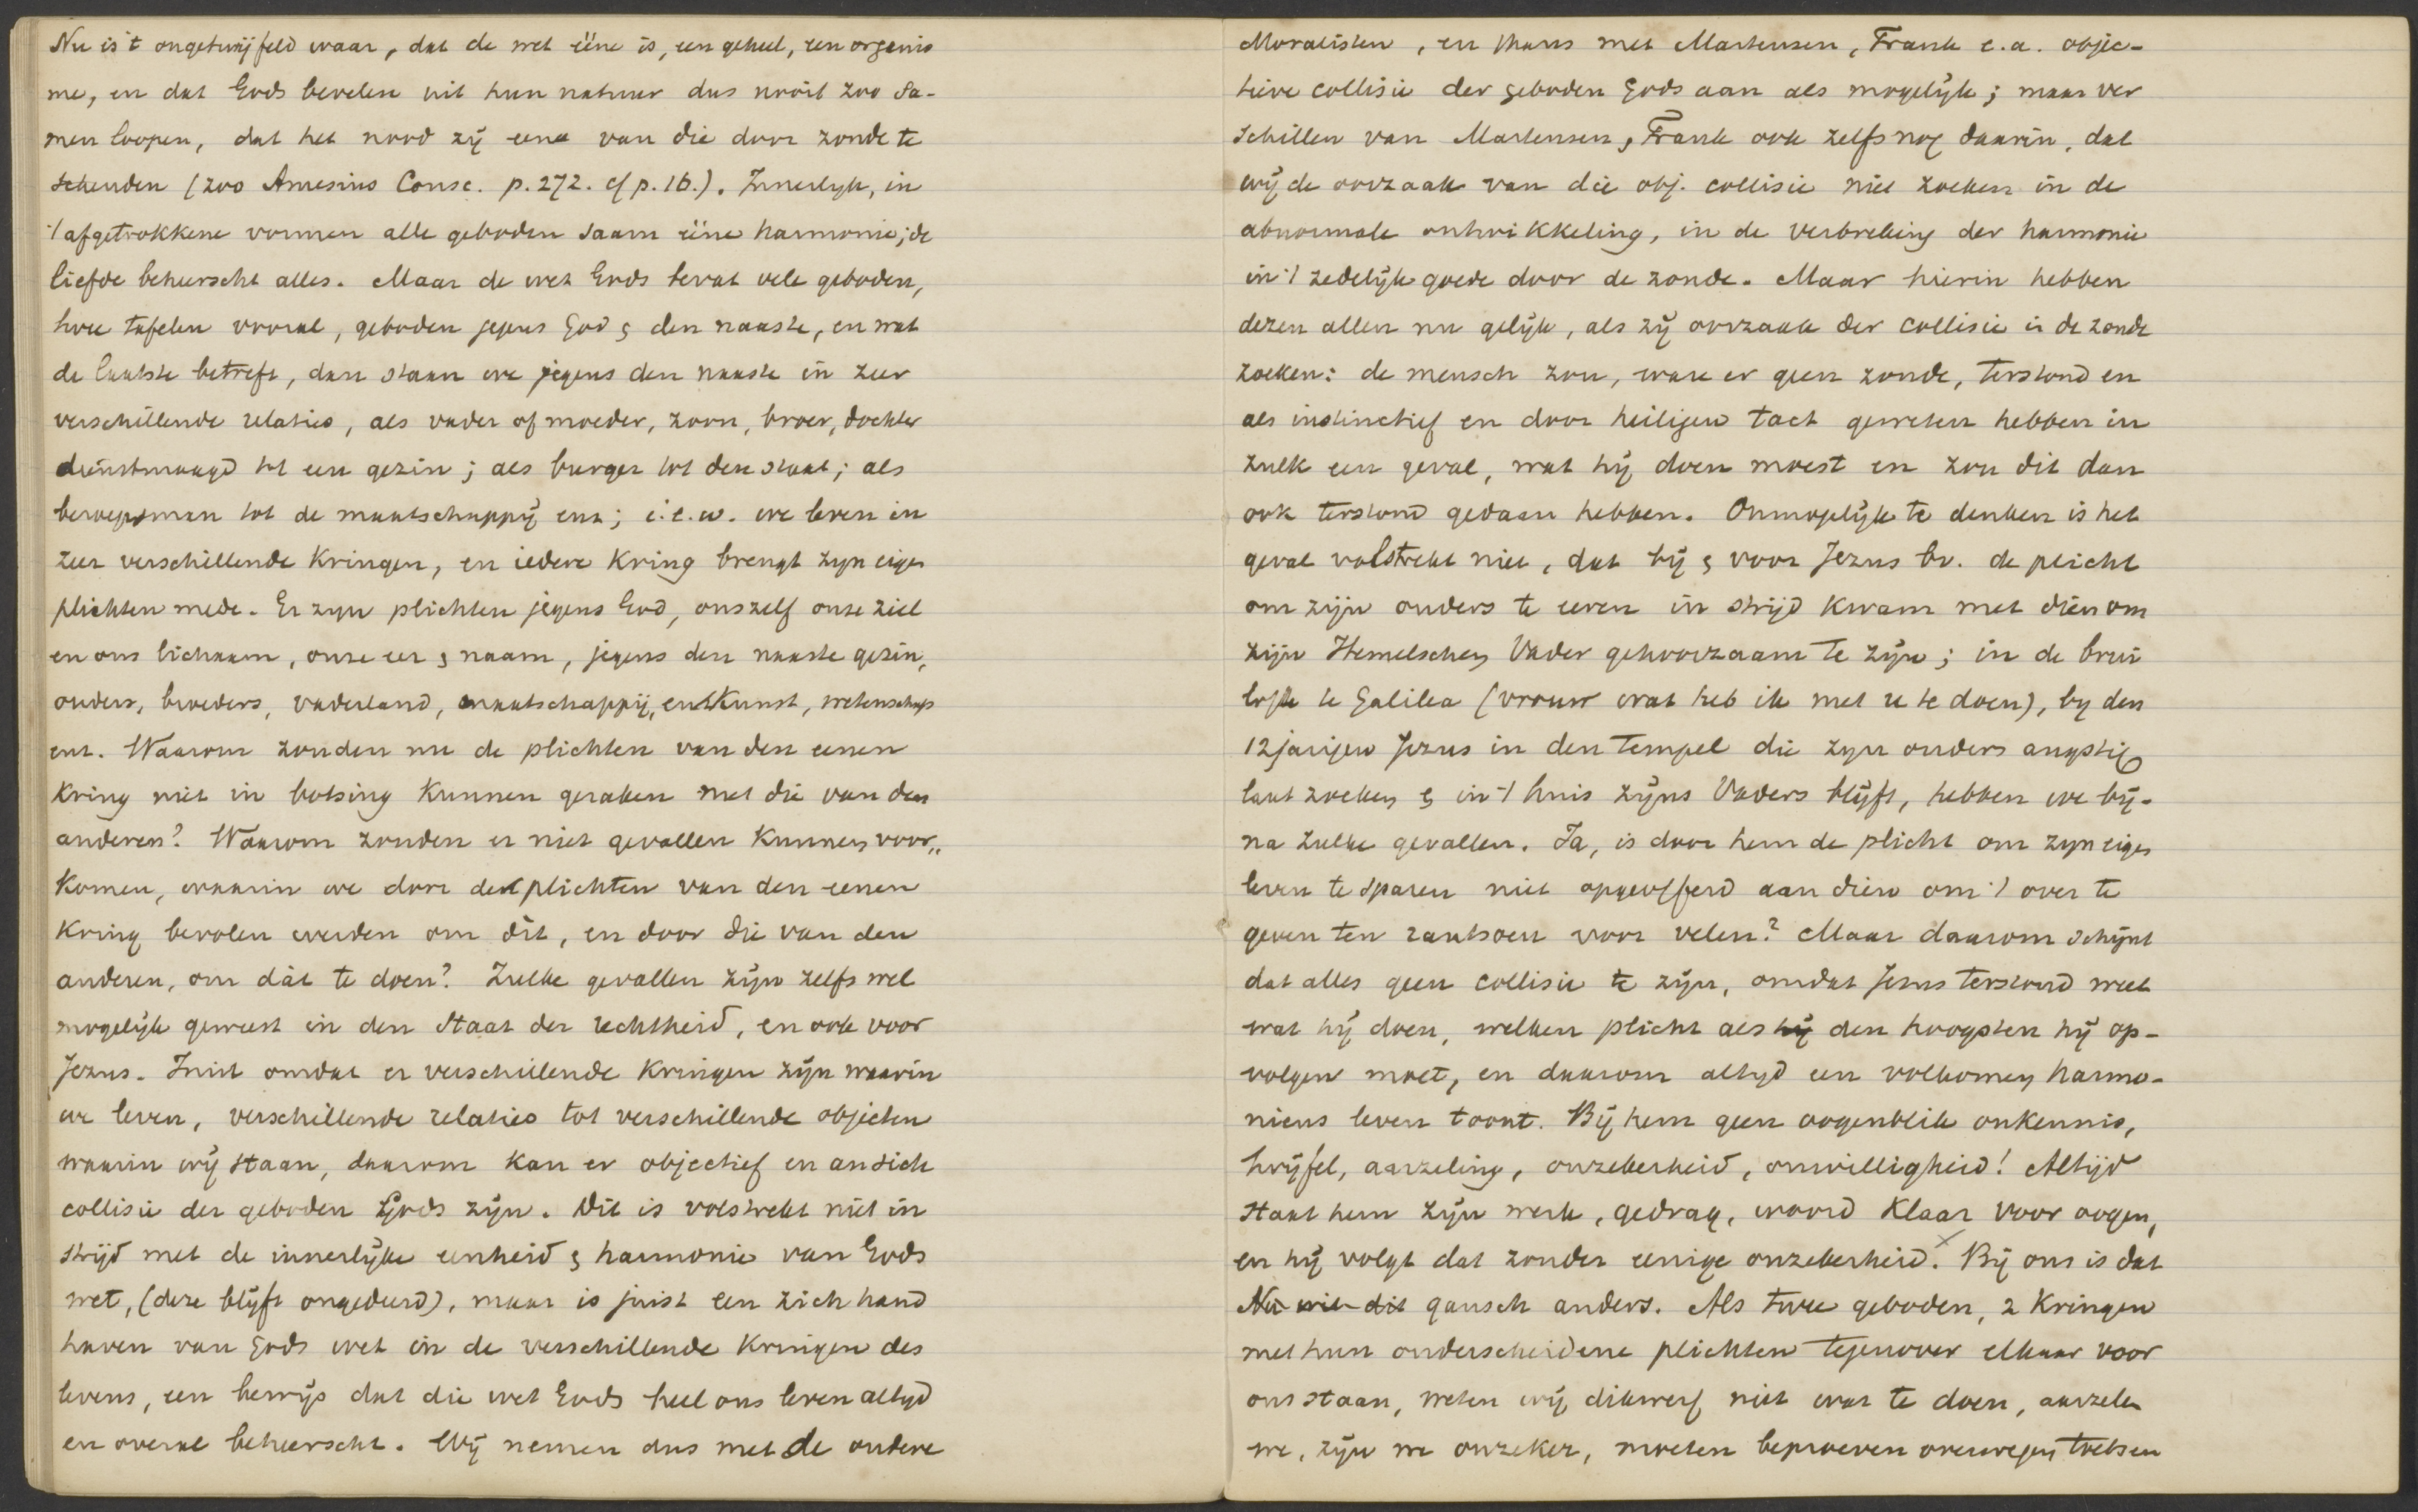 Nu is 't ongetwijfeld waar, dat de wet ééne is, een geheel, een organis
me, en dat Gods bevelen uit hun natuur dus nooit zoo sa-
men loopen, dat het nood zij eene van die door zonde te
schenden (zoo Amesius Consc. p. 272. cf p. 16.). Innerlyk, in
't afgetrokkene vormen alle geboden saam ééne harmonie; de
liefde beheerscht alles. Maar de wet Gods bevat vele geboden,
twee tafelen vooral, geboden jegens God & den naaste, en wat
de laatste betreft, dan staan we jegens den naaste in zeer
verschillende relaties, als vader of moeder, zoon, broer, dochter
dienstmaagd tot een gezin; als burger tot den staat; als
beroepsman tot de maatschappij enz; i.e.w. we leven in
zeer verschillende kringen, en iedere kring brengt zyn eigen
plichten mede. Er zyn plichten jegens God, onszelf onze ziel
en ons lichaam, onze eer & naam, jegens den naaste gezin,
ouders, broeders, vaderland, maatschappij, en kunst, wetenschap
enz. Waarom zouden nu de plichten van den eenen
kring niet in botsing kunnen geraken met die van den
anderen? Waarom zouden er niet gevallen kunnen voor„
komen, waarin we door de plichten van den eenen
kring bevolen werden om dit, en door die van den
anderen, om dát te doen? Zulke gevallen zijn zelfs wel
mogelijk geweest in den staat der rechtheid, en ook voor
Jezus. Juist omdat er verschillende kringen zijn waarin
we leven, verschillende relaties tot verschillende objecten
waarin wij staan, daarom kan er objectief en an sich
collisie der geboden Gods zijn. Dit is volstrekt niet in
strijd met de innerlijke eenheid & harmonie van Gods
wet, (deze blijft ongedeerd), maar is juist een zich hand
haven van Gods wet in de verschillende kringen des
levens, een bewijs dat die wet Gods heel ons leven altyd
en overal beheerscht. Wij nemen dus met de oudere
Moralisten, en thans met Martensen, Frank e.a. objec-
tieve collisie der geboden Gods aan als mogelijk; maar ver
schillen van Martensen, Frank ook zelfs nog daarin, dat
wij de oorzaak van die obj. collisie niet zoeken in de
abnormale ontwikkeling, in de verbreking der harmonie
in 't zedelijk goede door de zonde. Maar hierin hebben
dezen allen nu gelijk, als zij oorzaak der collisie in de zonde
zoeken: de mensch zou, ware er geen zonde, terstond en
als instinctief en door heiligen tact geweten hebben in
zulk een geval, wat hij doen moest en zou dit dan
ook terstond gedaan hebben. Onmogelijk te denken is het
geval volstrekt niet, dat bij & voor Jezus bv. de plicht
om zijn ouders te eeren in strijd kwam met dien om
zijn Hemelschen Vader gehoorzaam te zijn; in de brui
loft te Galilea (vrouw wat heb ik met u te doen), by den
12jarigen Jezus in den tempel die zyn ouders angstig
laat zoeken & in 't huis zijns Vaders blijft, hebben we bij-
na zulke gevallen. Ja, is door hem de plicht om zyn eigen
leven te sparen niet opgeofferd aan dien om 't over te
geven ten rantsoen voor velen? Maar daarom schijnt
dat alles geen collisie te zijn, omdat Jesus terstond weet
wat hij doen, welken plicht als hij den hoogsten hij op-
volgen moet, en daarom altyd een volkomen harmo-
nieus leven toont. Bij hem geen oogenblik onkennis,
twijfel, aarzeling, onzekerheid, onwilligheid! Altijd
staat hem zijn werk, gedrag, woord klaar voor oogen,
en hij volgt dat zonder eenige onzekerheid. Bij ons is dat
Nu wil dit gansch anders. Als twee geboden, 2 kringen
met hun onderscheidene plichten tegenover elkaar voor
ons staan, weten wij dikwerf niet wat te doen, aarzelen
we, zijn we onzeker, moeten beproeven overwegen toetsen